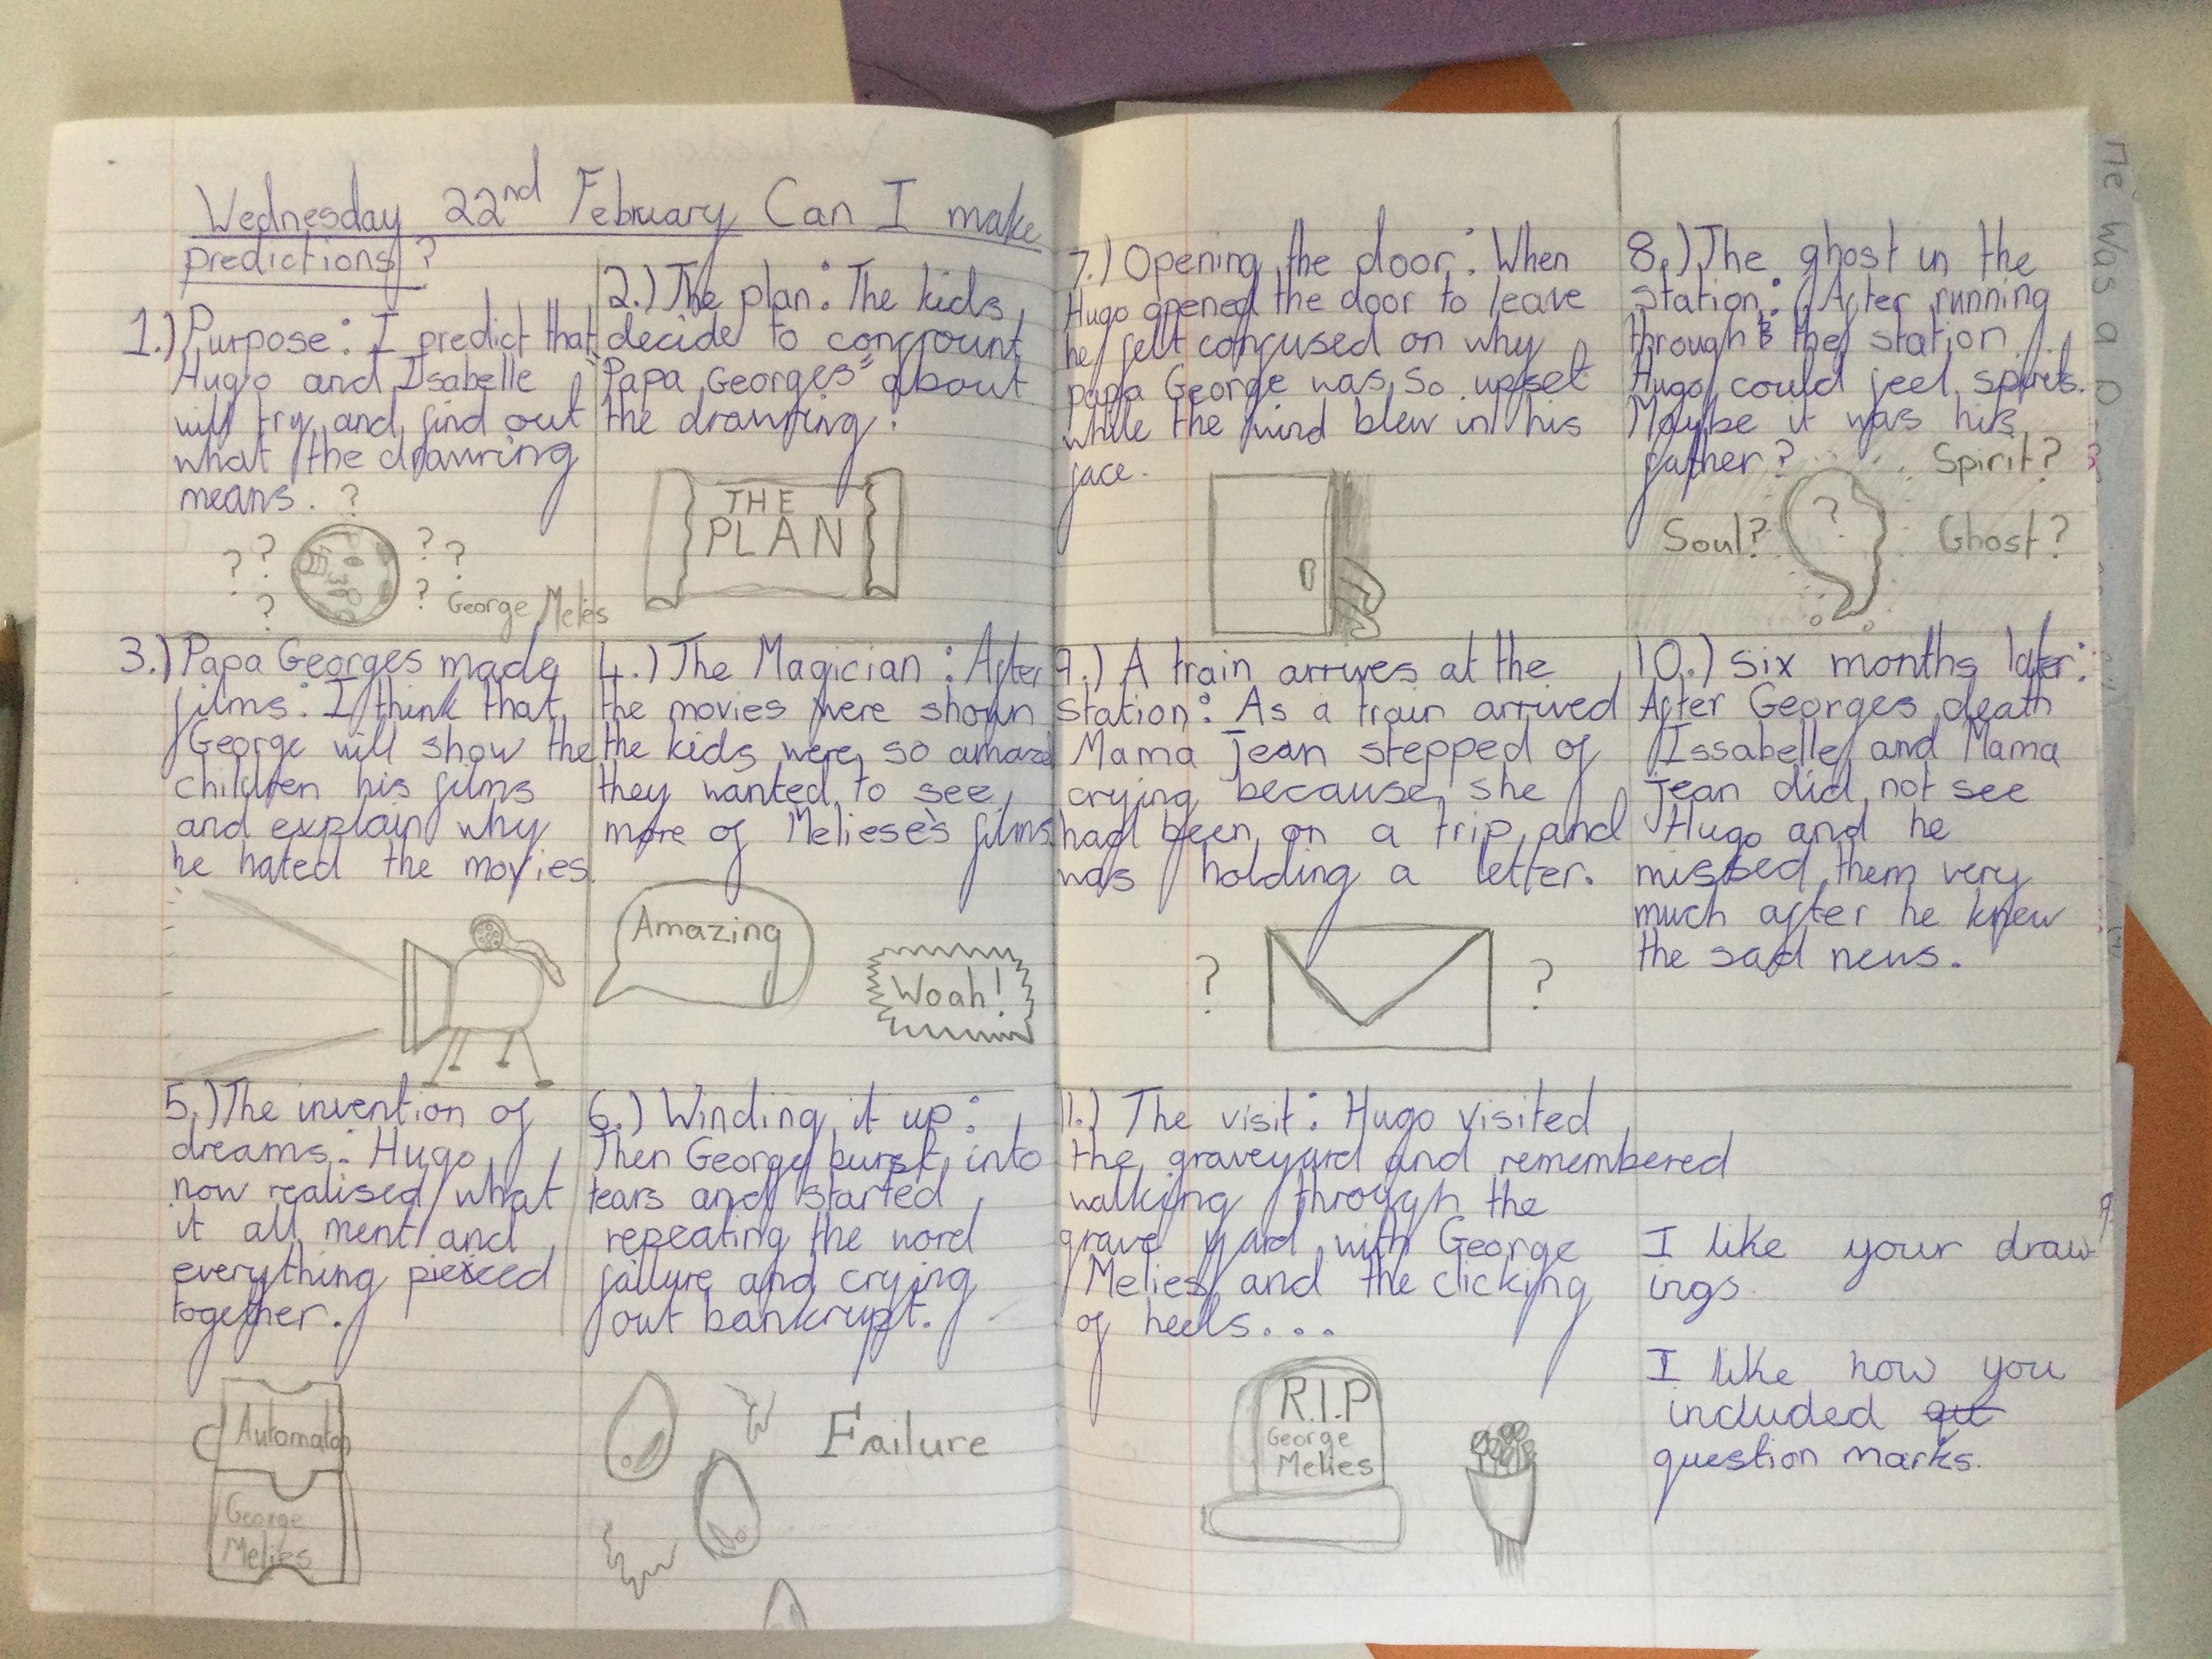 Wednesday 22nd February Can I make
predictions?
1.) Purpose: I predict that
Hugo and Isabelle
will try and find out
what the drawring
means.
? ? ? ? ? ? ?
George Melies
2.) The plan: The kids
decide to confrount
"Papa Georges" about
the drawring.
THE
PLAN
3.) Papa Georges made
films: I think that
George will show the
children his films
and explain why
he hated the movies.
4.) The Magician: After
the movies were shown
the kids were so amazed
they wanted to see
more of Meliese's films.
Amazing
Woah!
5.) The invention of
dreams: Hugo
now realised what
it all ment and
everything pieced
together.
Automaton
George
Melies
6.) Winding it up:
Then George burst into
tears and started
repeating the word
failure and crying
out bankrupt.
Failure
7.) Opening the door: When
Hugo opened the door to leave
he felt confused on why
papa George was so upset
while the wind blew in his
face.
8.) The ghost in the
station: After running
through the station
Hugo could feel spirits.
Maybe it was his
father?
Spirit?
Soul? ? Ghost?
9.) A train arrives at the
station: As a train arrived
Mama Jean stepped of
crying because she
had been on a trip and
was holding a letter.
? ?
10.) six months later:
After Georges death
Issabelle and Mama
Jean did not see
Hugo and he
missed them very
much after he knew
the sad news.
11.) The visit: Hugo visited
the graveyard and remembered
walking through the
grave yard with George
Melies and the clicking
of heels...
R.I.P
George
Melies
I like your draw
ings.
I like how you
included qu
question marks.
He was a